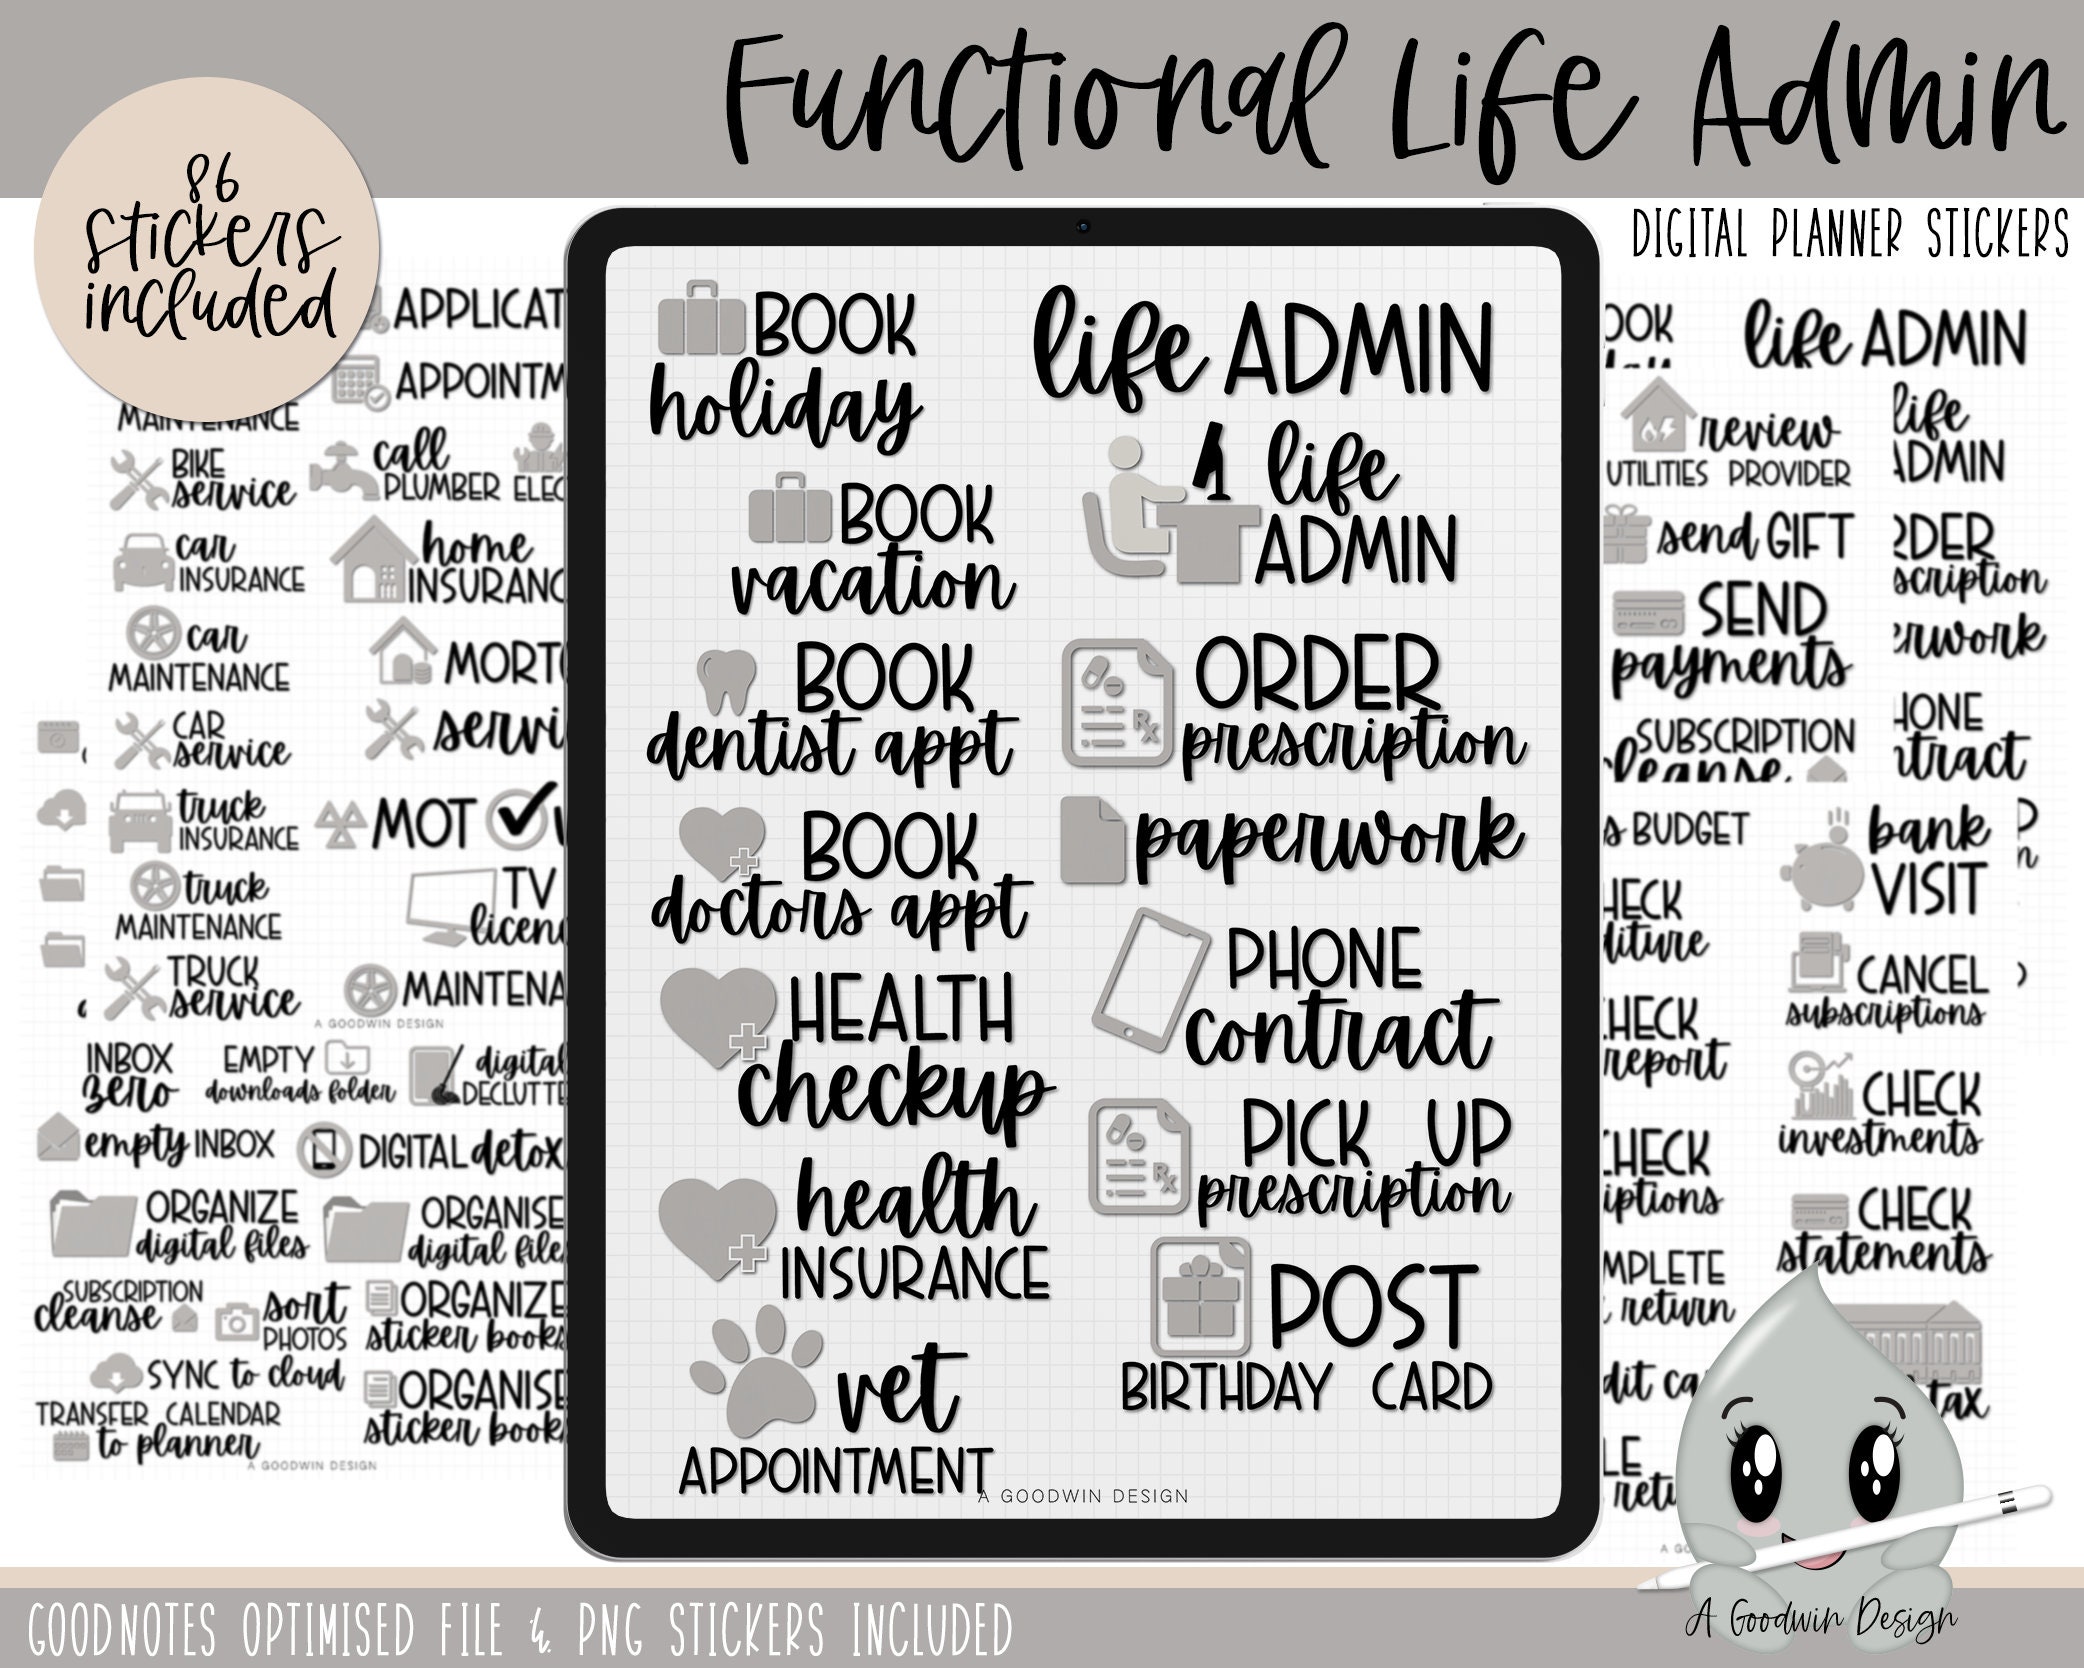 Functional Life Admin
86
stickers
included
DIGITAL PLANNER STICKERS
BOOK
holiday
BOOK
vacation
BOOK
dentist appt
BOOK
doctors appt
HEALTH
checkup
health
INSURANCE
vet
APPOINTMENT
life ADMIN
life
ADMIN
ORDER
prescription
Rx
paperwork
PHONE
contract
PICK UP
prescription
Rx
POST
BIRTHDAY CARD
A GOODWIN DESIGN
APPLICAT
APPOINTM
MAINTENANCE
BIKE
service
call
PLUMBER
ELEC
car
INSURANCE
home
INSURANC
car
MAINTENANCE
MORTG
CAR
service
servi
truck
INSURANCE
MOT
truck
MAINTENANCE
TV
licen
TRUCK
service
MAINTENA
A GOODWIN DESIGN
INBOX
zero
EMPTY
downloads folder
digital
DECLUTTE
empty INBOX
DIGITAL detox
ORGANIZE
digital files
ORGANISE
digital file
SUBSCRIPTION
cleanse
sort
PHOTOS
ORGANIZE
sticker books
SYNC to cloud
ORGANISE
sticker book
TRANSFER CALENDAR
to planner
A GOODWIN DESIGN
OOK
life ADMIN
review
UTILITIES PROVIDER
life
ADMIN
send GIFT
RDER
scription
SEND
payments
rwork
SUBSCRIPTION
cleanse
HONE
ntract
s BUDGET
bank
VISIT
HECK
diture
CANCEL
subscriptions
HECK
report
CHECK
investments
CHECK
iptions
CHECK
statements
MPLETE
return
dit ca
tax
LE
retu
GOODNOTES OPTIMISED FILE & PNG STICKERS INCLUDED
A Goodwin Design